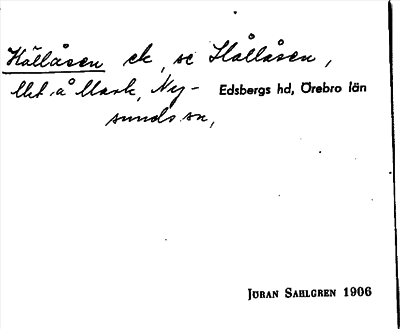 Hälläsen ck, se Hållåsen,
Utet å Mark, Ny- Edsbergs hd, Örebro län
sunds sn,
JÖRAN SAHLGREN 1906